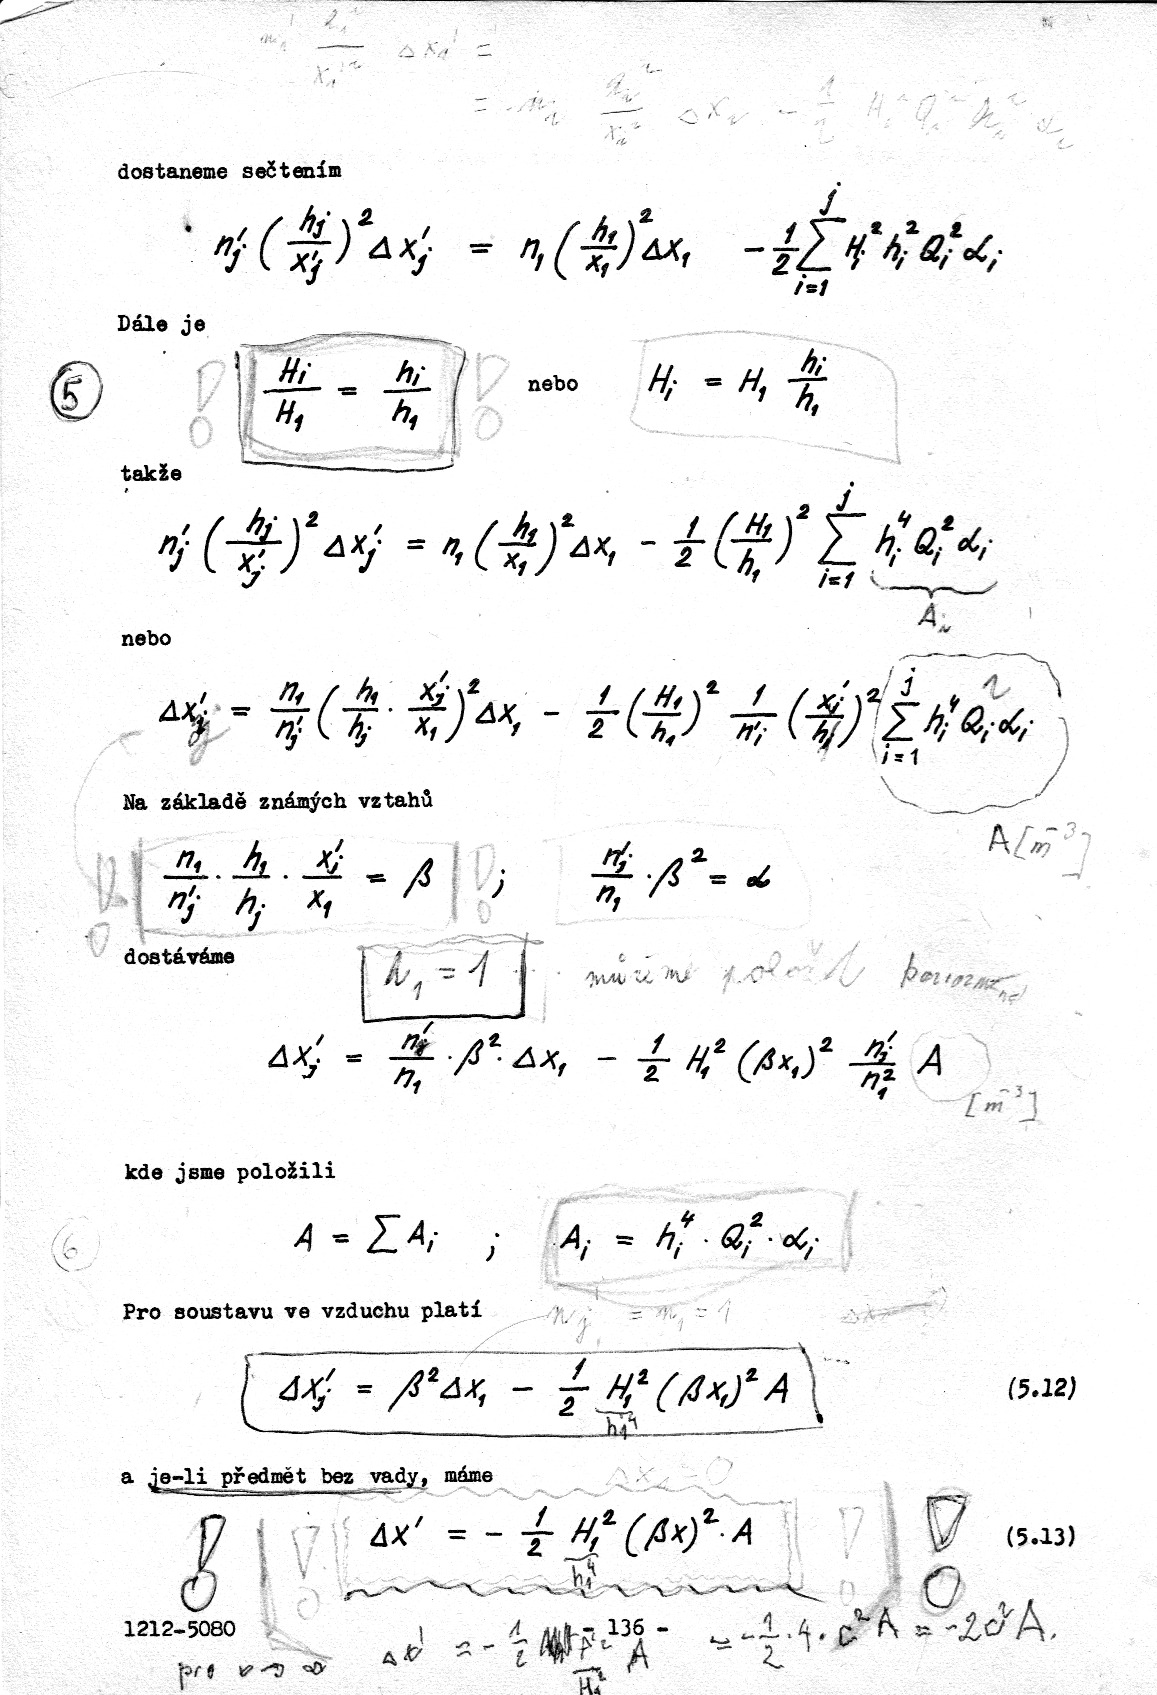 dostaneme sečtením
n'ⱼ (hⱼ/x'ⱼ)² Δx'ⱼ = n₁ (h₁/x₁)² Δx₁ - 1/2 ∑ᵢ₌₁ʲ Hᵢ² hᵢ² Qᵢ² αᵢ
Dále je
5
! Hᵢ/H₁ = hᵢ/h₁ ! nebo Hᵢ = H₁ hᵢ/h₁
takže
n'ⱼ (hⱼ/x'ⱼ)² Δx'ⱼ = n₁ (h₁/x₁)² Δx₁ - 1/2 (H₁/h₁)² ∑ᵢ₌₁ʲ hᵢ⁴ Qᵢ² αᵢ
Aᵢ
nebo
Δx'ⱼ = n₁/n'ⱼ (h₁/hⱼ · x'ⱼ/x₁)² Δx₁ - 1/2 (H₁/h₁)² 1/n'ᵢ (x'ⱼ/hⱼ)² ∑ᵢ₌₁ʲ hᵢ⁴ Qᵢ² αᵢ
A [m⁻³]
Na základě známých vztahů
! n₁/n'ⱼ · h₁/hⱼ · x'ⱼ/x₁ = β ! ; n'ⱼ/n₁ · β² = α
dostáváme
h₁ = 1 můžeme položit
Δx'ⱼ = n'ⱼ/n₁ · β² · Δx₁ - 1/2 H₁² (βx₁)² n'ⱼ/n₁² A
[m⁻³]
kde jsme položili
6
A = ∑ Aᵢ ; Aᵢ = hᵢ⁴ · Qᵢ² · αᵢ
Pro soustavu ve vzduchu platí nⱼ' = n₁ = 1
Δx'ⱼ = β² Δx₁ - 1/2 H₁² (βx₁)² A (5.12)
h₁⁴
a je-li předmět bez vady, máme Δx₁ = 0
! ! Δx' = - 1/2 H₁² (βx)² · A ! ! (5.13)
h₁⁴
1212-5080 - 136 -